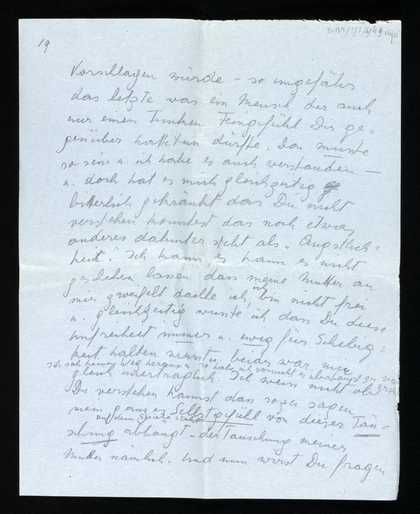 19
Vorschlagen würde – so ungefähr
das letzte was ein Mensch der auch
nur einen Funken Feingefühl Dir ge-
genüber hat tun dürfte. Das musste
so sein u. ich habe es auch verstanden –
u. doch hat es mich gleichzeitig
bitterlich gekränkt dass Du nicht
verstehen konntest dass noch etwas
anderes dahinter steht als "Ängstlich-
keit". Ich kann es kann es nicht
geschehen lassen dass meine Mutter an
mir zweifelt ich bin nicht frei
u. gleichzeitig wusste ich dass Du diese
Unfreiheit immer u. ewig für Schwäch-
halten musst beides war mir
gleich unerträglich. Ich weiss nicht ob
Du verstehen kannst dass sozusagen
mein ganzes Selbstgefühl von dieser Täu-
schung abhängt – der Täuschung meiner
Mutter nämlich. Und nun wirst Du fragen